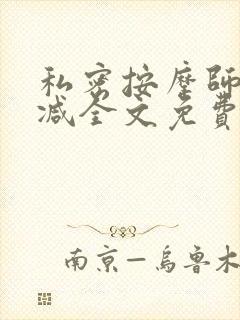 私密按摩師
减全文免費
南京—烏魯木